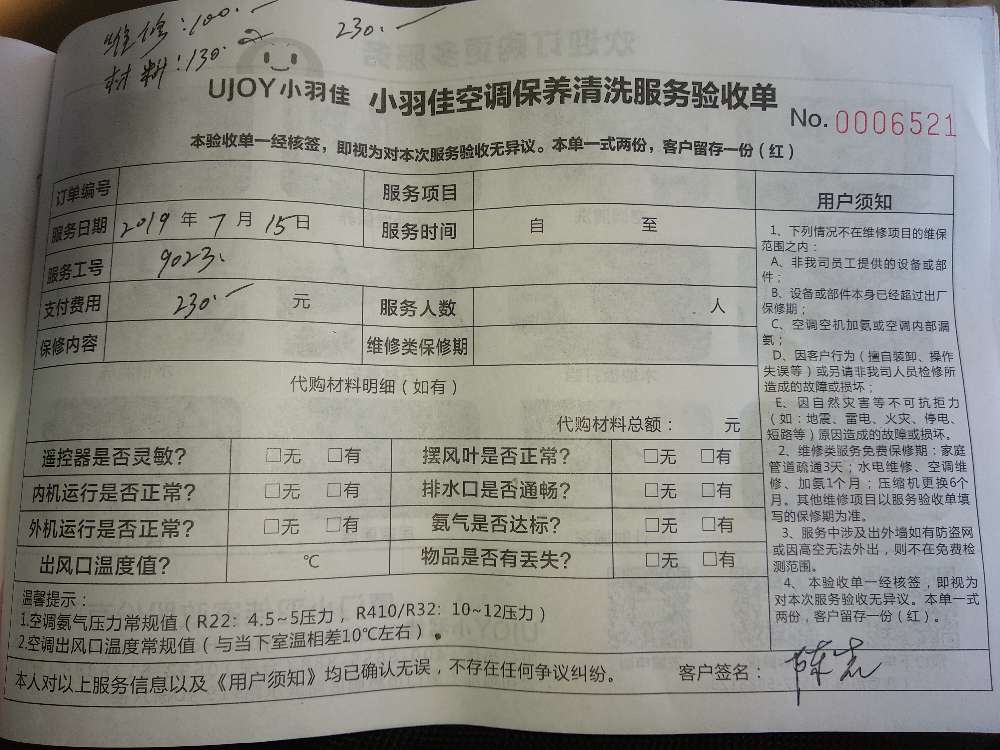 维修:100.
230.
材料:130.
UJOY小羽佳
小羽佳空调保养清洗服务验收单
No. 0006521
本验收单一经核签，即视为对本次服务验收无异议。本单一式两份，客户留存一份（红）
订单编号 服务项目
服务日期 2019 年 7 月 15 日 服务时间 自 至
服务工号 9023.
支付费用 230. 元 服务人数 人
保修内容 维修类保修期
代购材料明细（如有）
代购材料总额： 元
遥控器是否灵敏? □无 □有 摆风叶是否正常? □无 □有
内机运行是否正常? □无 □有 排水口是否通畅? □无 □有
外机运行是否正常? □无 □有 氨气是否达标? □无 □有
出风口温度值? ℃ 物品是否有丢失? □无 □有
温馨提示：
1.空调氨气压力常规值（R22：4.5~5压力，R410/R32：10~12压力）
2.空调出风口温度常规值（与当下室温相差10℃左右）
本人对以上服务信息以及《用户须知》均已确认无误，不存在任何争议纠纷。 客户签名：
用户须知
1、下列情况不在维修项目的维保
范围之内：
A、非我司员工提供的设备或部
件；
B、设备或部件本身已经超过出厂
保修期；
C、空调空机加氨或空调内部漏
氨；
D、因客户行为（擅自装卸、操作
失误等）或另请非我司人员检修所
造成的故障或损坏；
E、因自然灾害等不可抗拒力
（如：地震、雷电、火灾、停电、
短路等）原因造成的故障或损坏。
2、维修类服务免费保修期：家庭
管道疏通3天；水电维修、空调维
修、加氨1个月；压缩机更换6个
月。其他维修项目以服务验收单填
写的保修期为准。
3、服务中涉及出外墙如有防盗网
或因高空无法外出，则不在免费检
测范围。
4、本验收单一经核签，即视为
对本次服务验收无异议。本单一式
两份，客户留存一份（红）。